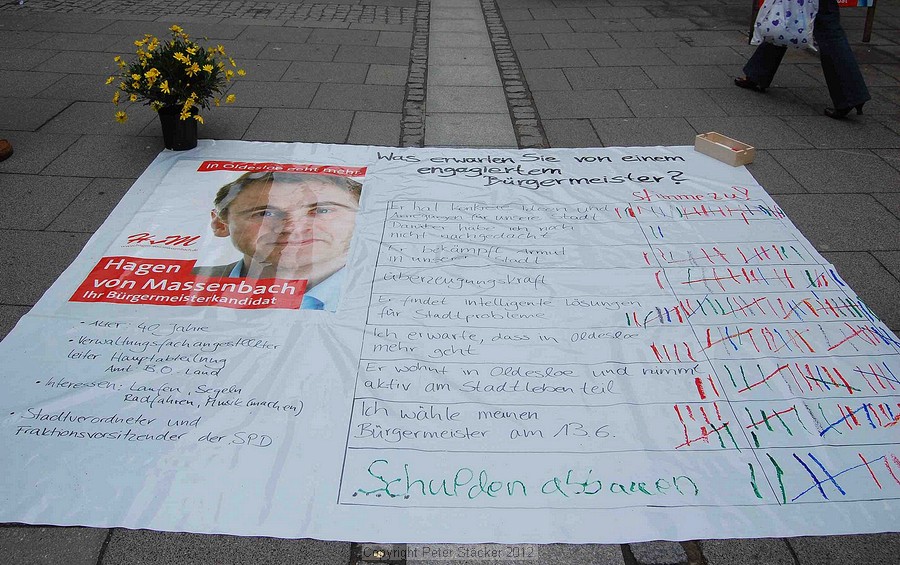 In Oldesloe geht mehr
H.v.M
Hagen
von Massenbach
Ihr Bürgermeisterkandidat
• Alter: 40 Jahre
• Verwaltungsfachangestellter
leiter Hauptabteilung
Amt B.O. Land
• Interessen: Laufen, Segeln
Radfahren, Musik (machen)
• Stadtverordneter und
Fraktionsvorsitzender der SPD
Was erwarten Sie von einem
engagiertem
Bürgermeister?
stimme zu
Er hat konkrete Ideen und
Anregungen für unsere Stadt
Darüber habe ich noch
nicht nachgedacht
Er bekämpft Armut
in unserer Stadt
Überzeugungskraft
Er findet intelligente Lösungen
für Stadtprobleme
Ich erwarte, dass in Oldesloe
mehr geht
Er wohnt in Oldesloe und nimmt
aktiv am Stadtleben teil
Ich wähle meinen
Bürgermeister am 13.6.
Schulden abbauen
Copyright Peter Stäcker 2012